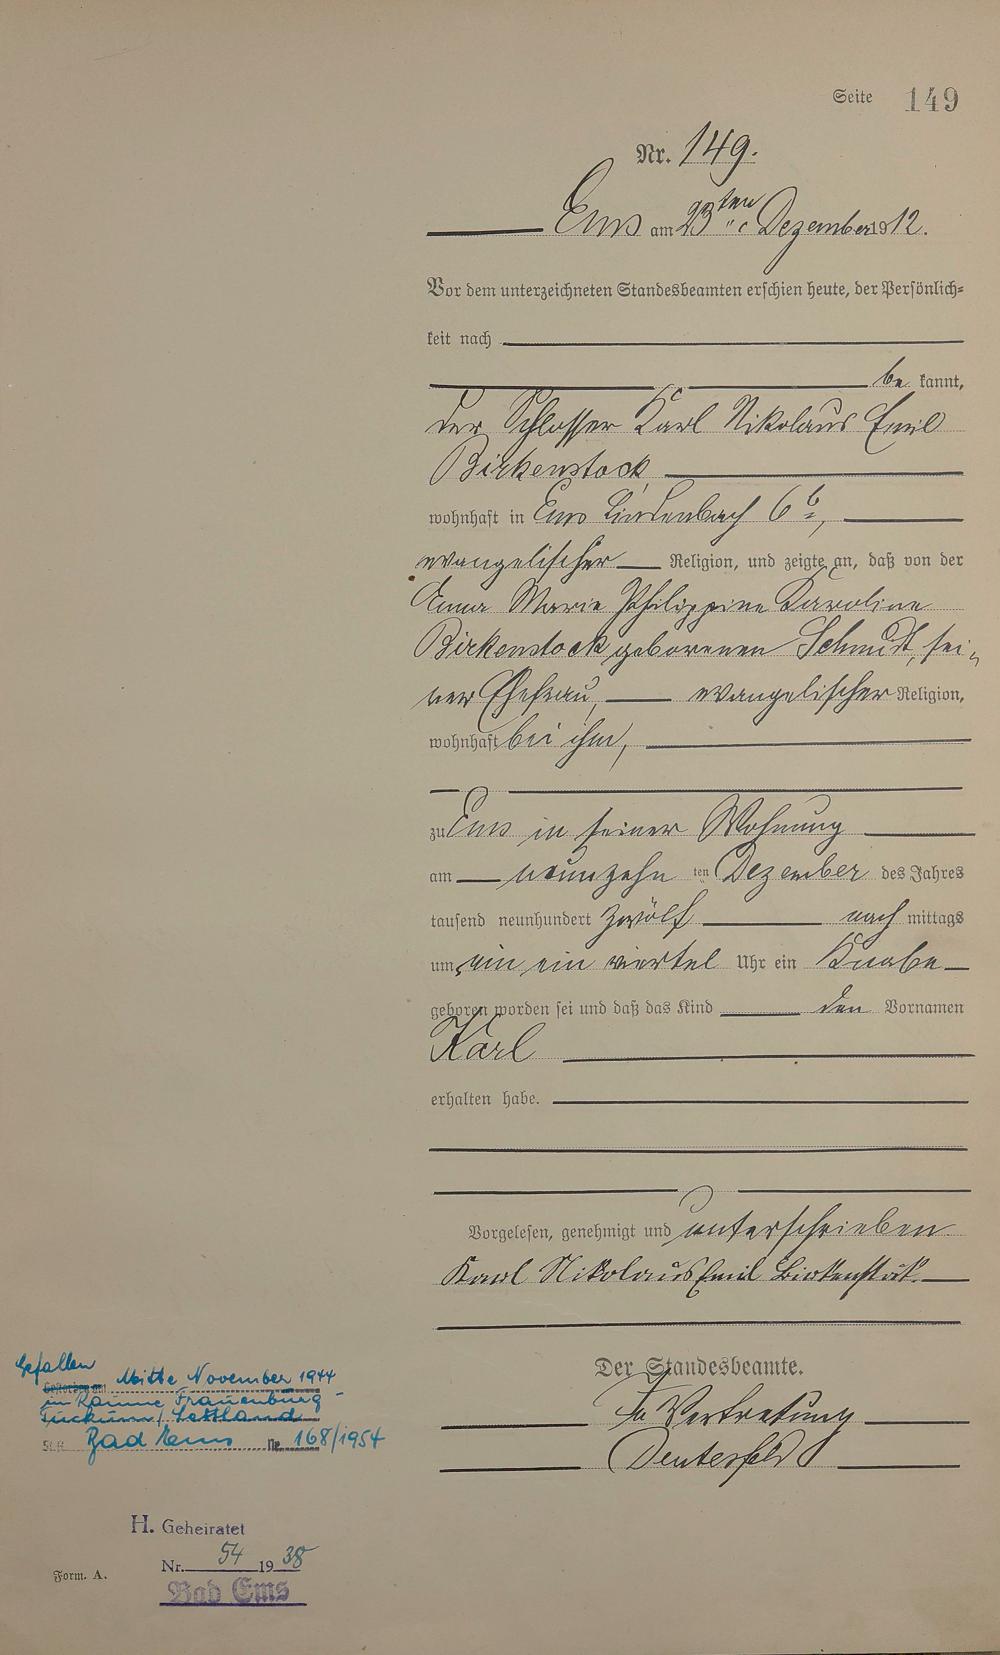 Seite 149
Nr. 149.
Ems am 23ten Dezember 1912.
Vor dem unterzeichneten Standesbeamten erschien heute, der Persönlich-
keit nach
be kannt,
der Schlosser Karl Nikolaus Emil
Birkenstock,
wohnhaft in Ems Lindenbach 6b,
evangelischer Religion, und zeigte an, daß von der
Anna Marie Philippine Karoline
Birkenstock geborenen Schmidt, sei-
ner Ehefrau, evangelischer Religion,
wohnhaft bei ihm,
zu Ems in seiner Wohnung
am neunzehn ten Dezember des Jahres
tausend neunhundert zwölf nach mittags
um ein ein viertel Uhr ein Knabe
geboren worden sei und daß das Kind den Vornamen
Karl
erhalten habe.
Vorgelesen, genehmigt und unterschrieben
Karl Nikolaus Emil Birkenstock.
Der Standesbeamte.
In Vertretung
Gefallen
Gestorben am Mitte November 1944
im Raume Frauenburg-
Tuckum / Lettland
Bad Ems Nr. 168/1954
H. Geheiratet
Nr. 54 1938
Bad Ems
Form. A.